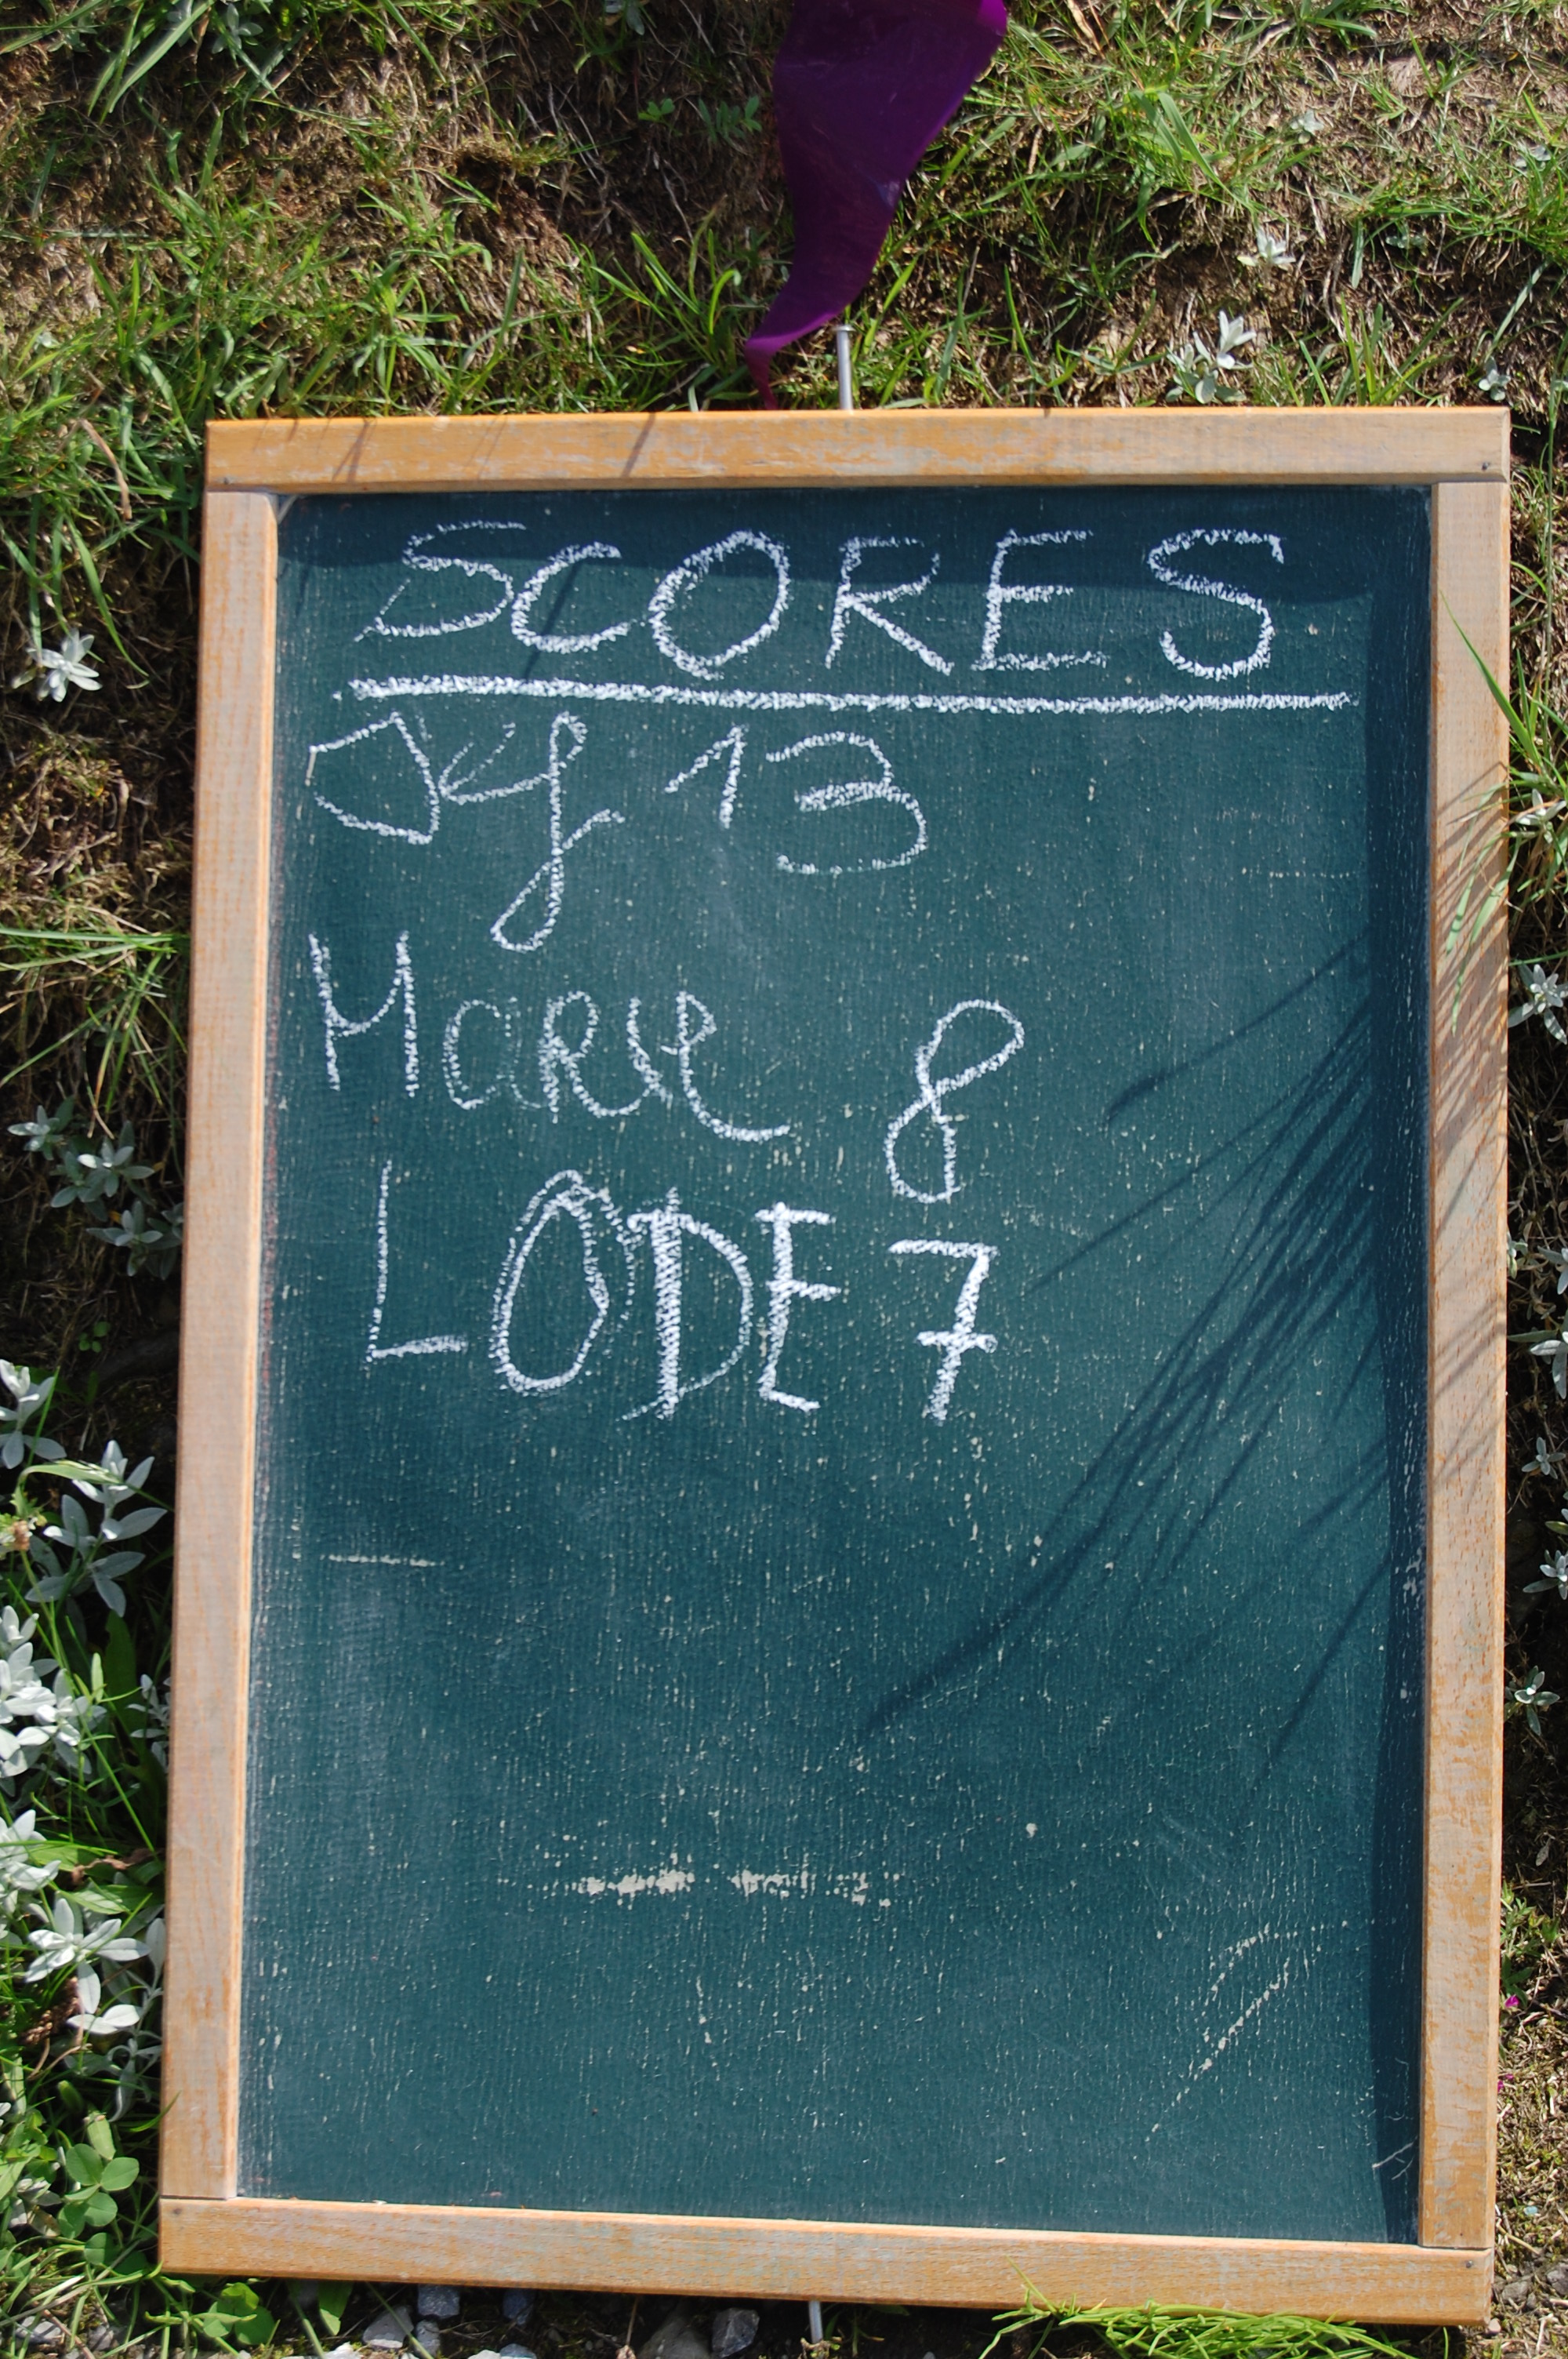 SCORES
13
Marie 8
LODE 7